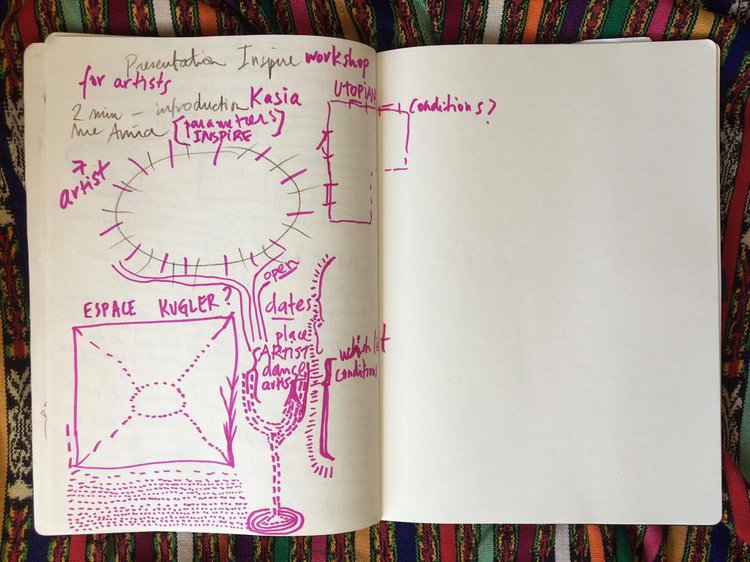 Presentation Inspire workshop
for artists
UTOPIAN
2 min – introduction Kasia
Conditions?
me Anna [parameters
INSPIRE]
artist
open
ESPACE KUGLER?
dates
place
ARTIST
dance
artist
which
conditions